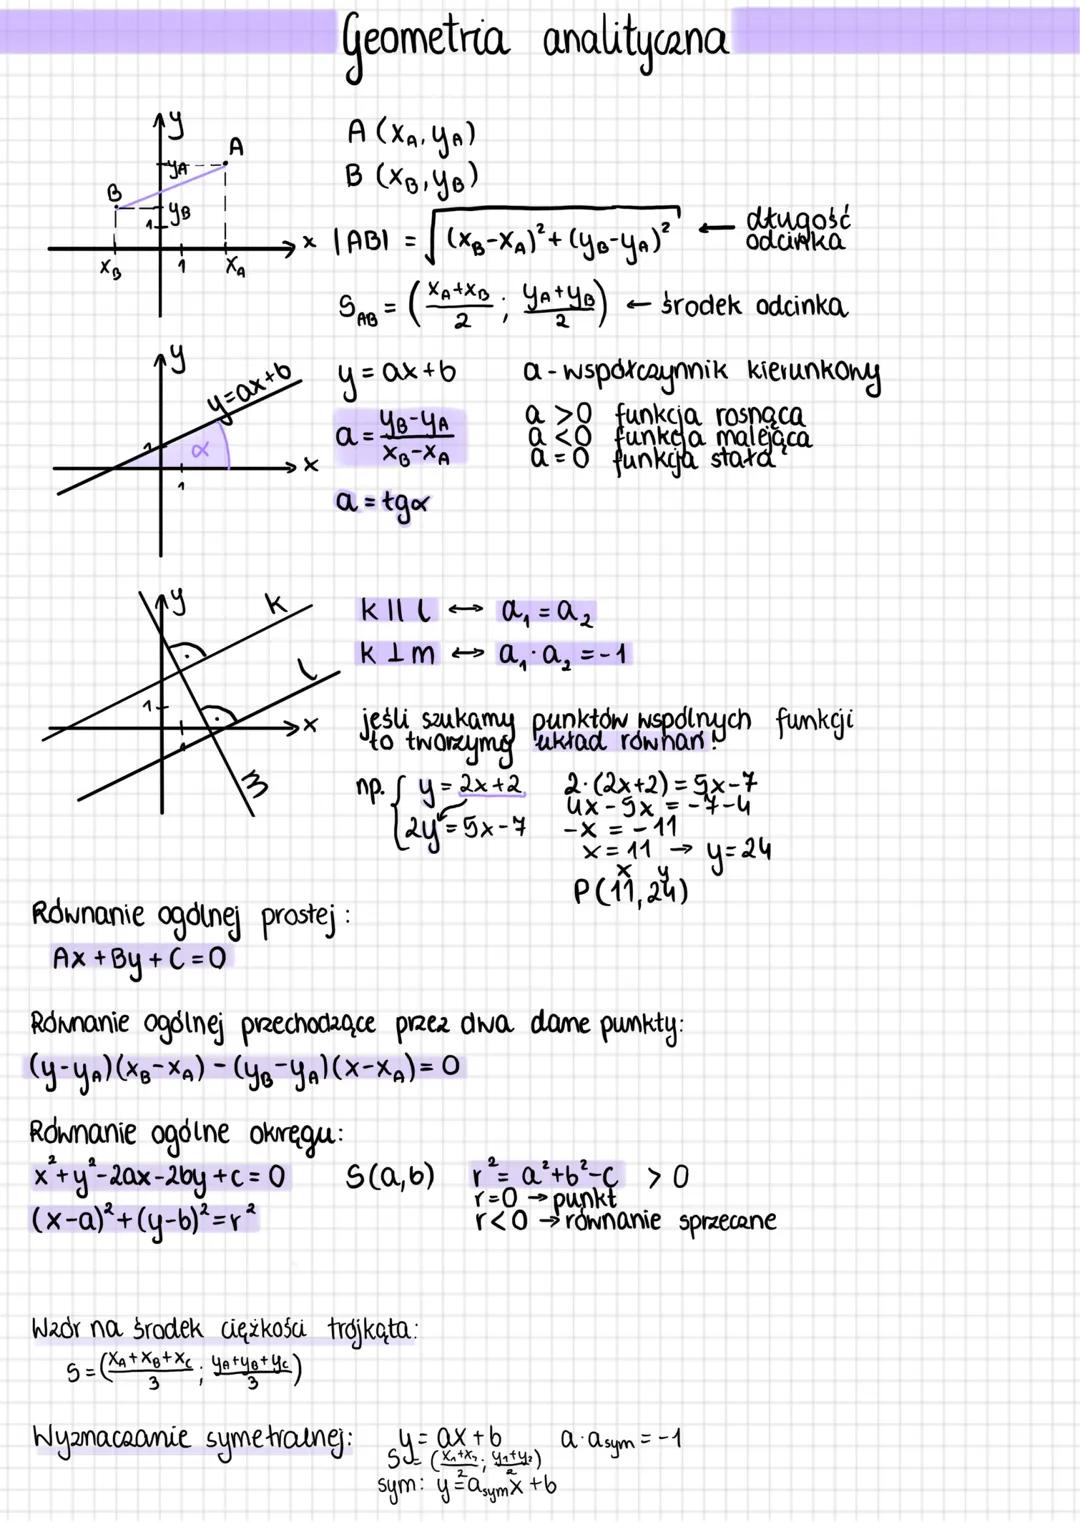 Geometria analityczna
y
A
yA
B
yB
1
x
xB
1
xA
A (xA, yA)
B (xB, yB)
|AB| = √((xB-xA)²+(yB-yA)²) ← długość odcinka
SAB = (xA+xB/2 ; yA+yB/2) ← środek odcinka
y
y=ax+b
α
1
x
1
y = ax+b
a = yB-yA/xB-xA
a = tgα
a - współczynnik kierunkowy
a >0 funkcja rosnąca
a <0 funkcja malejąca
a = 0 funkcja stała
y
k
l
1
x
1
m
k || l ↔ a₁ = a₂
k ⊥ m ↔ a₁ · a₂ = -1
jeśli szukamy punktów wspólnych funkcji
to tworzymy układ równań!
np. { y = 2x+2
2y = 5x-7
2·(2x+2) = 5x-7
4x-5x = -7-4
-x = -11
x = 11 → y = 24
x y
P(11,24)
Równanie ogólnej prostej:
Ax + By + C = 0
Równanie ogólnej przechodzące przez dwa dane punkty:
(y-yA)(xB-xA) - (yB-yA)(x-xA) = 0
Równanie ogólne okręgu:
x²+y²-2ax-2by+c = 0 S(a,b) r² = a²+b²-c > 0
r=0 → punkt
(x-a)²+(y-b)²=r² r<0 → równanie sprzeczne
Wzór na środek ciężkości trójkąta:
S = (xA+xB+xC/3 ; yA+yB+yC/3)
Wyznaczanie symetralnej: y = ax+b a·asym = -1
S = (x₁+x₂/2 ; y₁+y₂/2)
sym: y = asymx + b